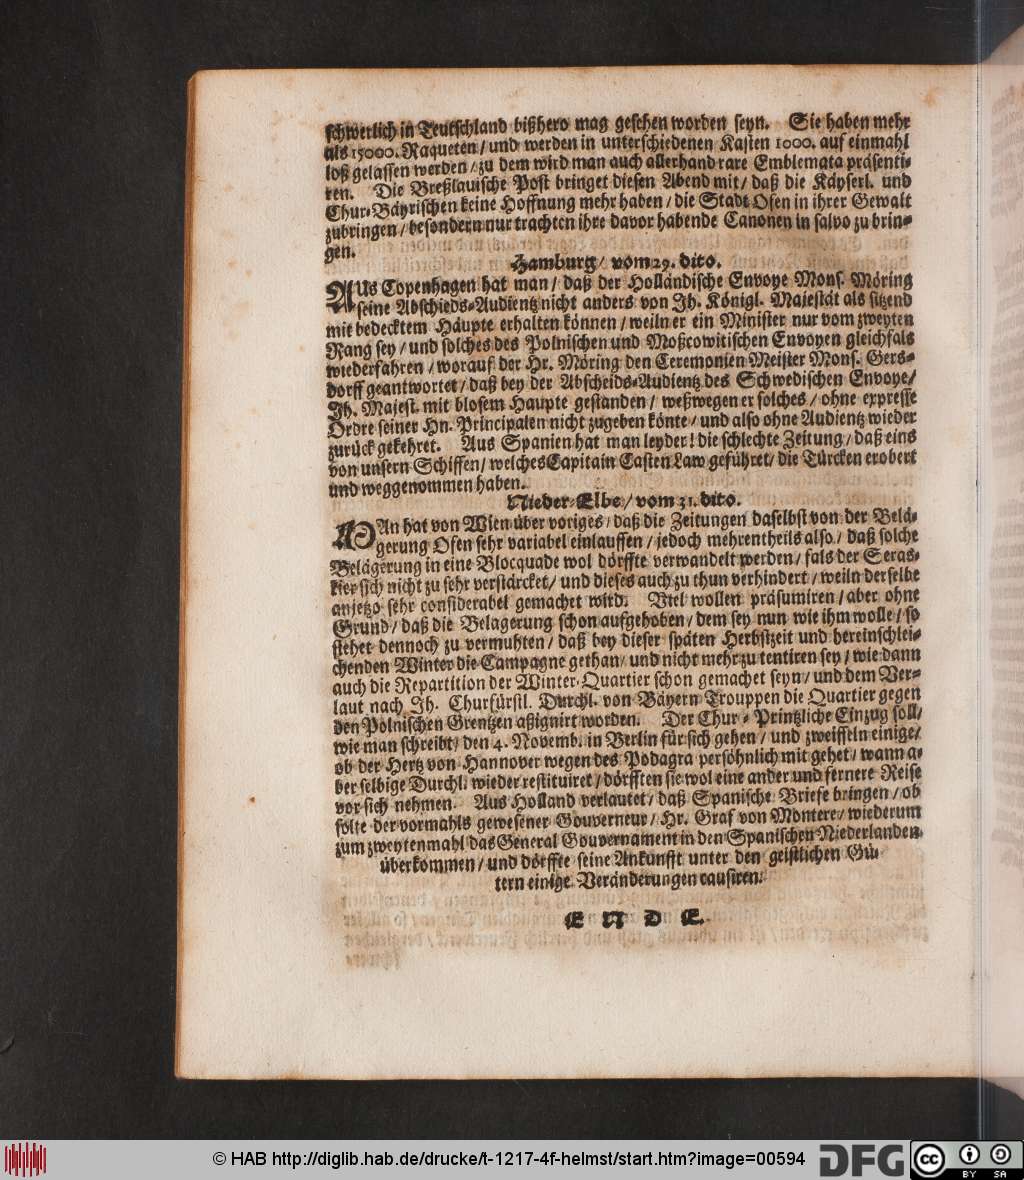 schwerlich in Teutschland bißhero mag gesehen worden seyn. Sie haben mehr
als 15000. Raqueten / und werden in unterschiedenen Kasten 1000. auf einmahl
loß gelassen werden / zu dem wird man auch allerhand rare Emblemata präsenti-
ren. Die Breßlauische Post bringet diesen Abend mit / daß die Käyserl. und
Chur-Bäyrischen keine Hoffnung mehr haben / die Stadt Ofen in ihrer Gewalt
zubringen / besondern nur trachten ihre davor habende Canonen in salvo zu brin-
gen.
Hamburg / vom 29. dito.
AUs Copenhagen hat man / daß der Holländische Envoye Mons. Möring
seine Abschieds-Audientz nicht anders von Ih. Königl. Majestät als sitzend
mit bedecktem Häupte erhalten können / weiln er ein Minister nur vom zweyten
Rang sey / und solches des Polnischen und Moßcowitischen Envoyen gleichfals
wiederfahren / worauf der Hr. Möring den Ceremonien Meister Mons. Gers-
dorff geantwortet / daß bey der Abscheids-Audientz des Schwedischen Envoye /
Ih. Majest. mit blosem Haupte gestanden / weßwegen er solches / ohne expresse
Ordre seiner Hn. Principalen nicht zugeben könte / und also ohne Audientz wieder
zurück gekehret. Aus Spanien hat man leyder! die schlechte Zeitung / daß eins
von unsern Schiffen / welches Capitain Casten Law geführet / die Türcken erobert
und weggenommen haben.
Nieder-Elbe / vom 31. dito.
MAn hat von Wien über voriges / daß die Zeitungen daselbst von der Belä-
gerung Ofen sehr variabel einlauffen / jedoch mehrentheils also / daß solche
Belägerung in eine Blocquade wol dörffte verwandelt werden / fals der Seras-
kier sich nicht zu sehr verstärcket / und dieses auch zu thun verhindert / weiln derselbe
anjetzo sehr considerabel gemachet wird. Viel wollen präsumiren / aber ohne
Grund / daß die Belagerung schon aufgehoben / dem sey nun wie ihm wolle / so
stehet dennoch zu vermuhten / daß bey dieser späten Herbstzeit und hereinschlei-
chenden Winter die Campagne gethan / und nicht mehr zu tentiren sey / wie dann
auch die Repartition der Winter-Quartier schon gemachet seyn / und dem Ver-
laut nach Ih. Churfürstl. Durchl. von Bäyern Trouppen die Quartier gegen
den Polnischen Grentzen aßignirt worden. Der Chur-Printzliche Einzug soll /
wie man schreibt / den 4. Novemb. in Berlin für sich gehen / und zweiffeln einige /
ob der Hertz von Hannover wegen des Podagra persöhnlich mit gehet / wann a-
ber selbige Durchl. wieder restituiret / dörfften sie wol eine ander und fernere Reise
vor sich nehmen. Aus Holland verlautet / daß Spanische Briefe bringen / ob
solte der vormahls gewesener Gouverneur / Hr. Graf von Montere / wiederum
zum zweytenmahl das General Gouvernament in den Spanischen Niederlanden
überkommen / und dörffte seine Ankunfft unter den geistlichen Gü-
tern einige Veränderungen causiren.
E N D E.
© HAB http://diglib.hab.de/drucke/t-1217-4f-helmst/start.htm?image=00594
DFG
cc BY SA